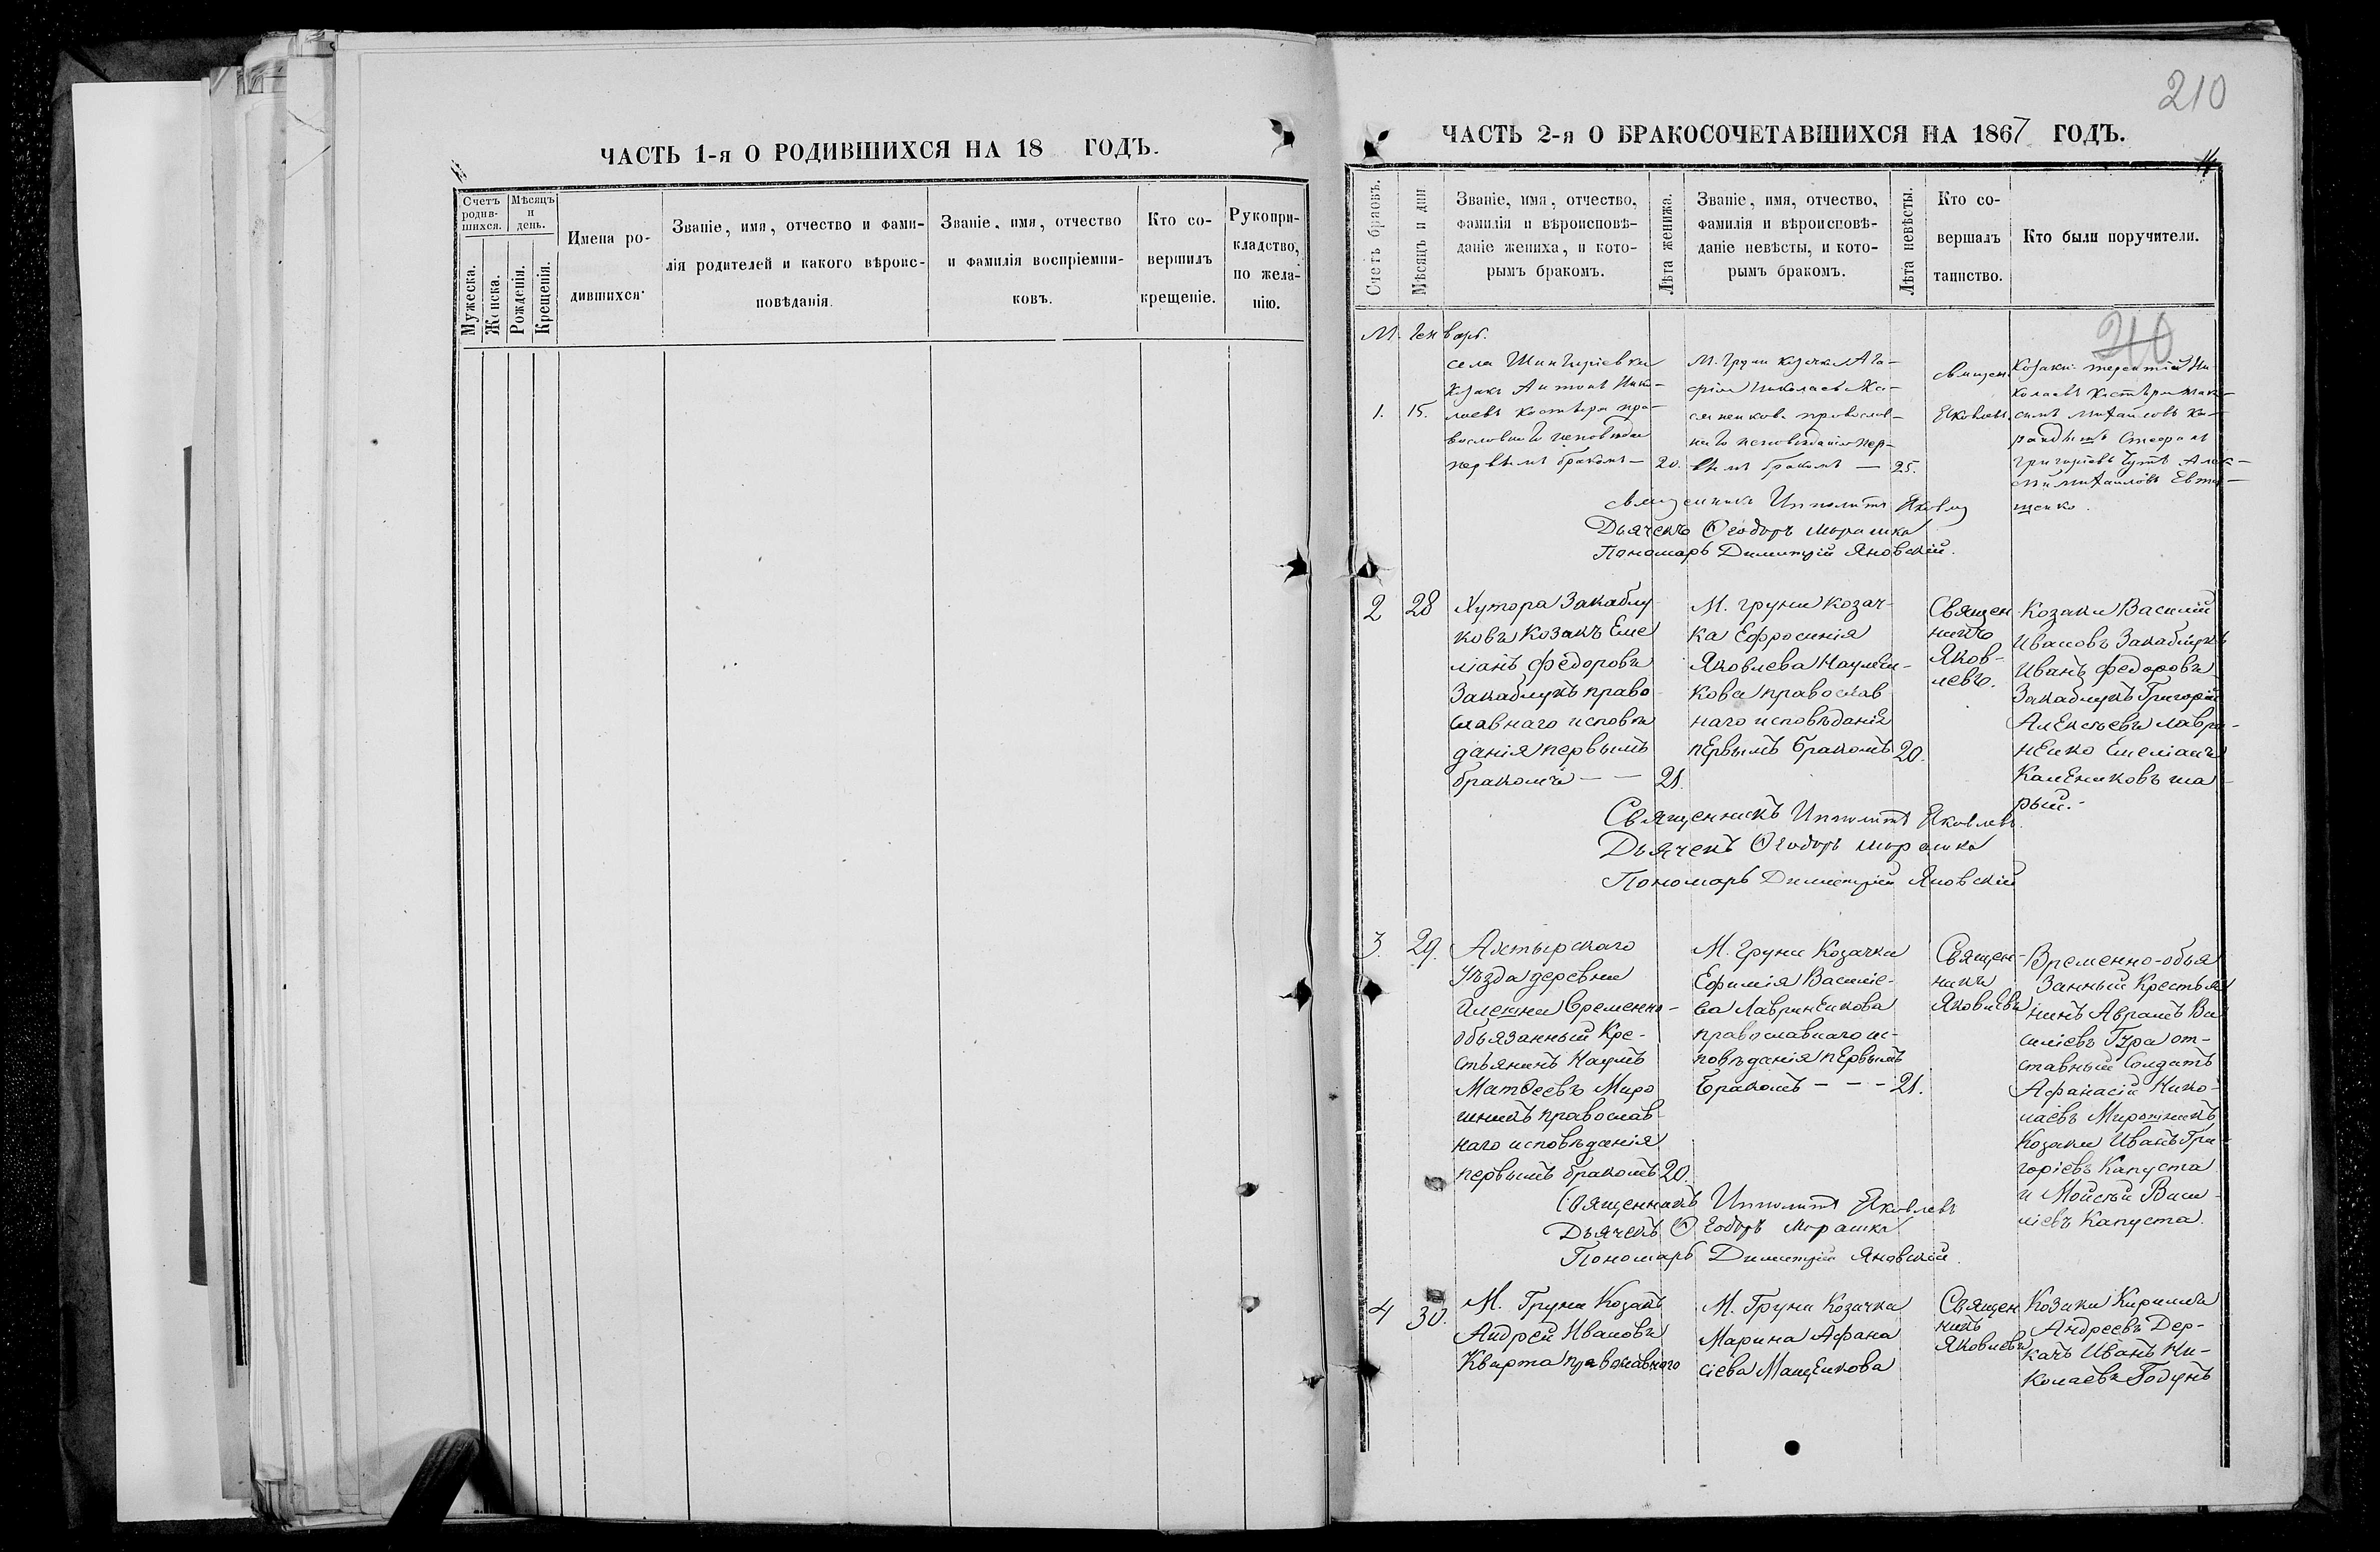 ЧАСТЬ 1-я О РОДИВШИХСЯ НА 18 ГОДЪ.
Счетъ родив-
шихся.
Мѣсяцъ
и
день.
Мужеска.
Женска.
Рожденія.
Крещенія.
Имена ро-
дившихся
Званіе, имя, отчество и фами-
лія родителей и какого вѣроис-
повѣданія.
Званіе, имя, отчество
и фамилія воспріемни-
ковъ.
Кто со-
вершилъ
крещеніе.
Рукопри-
кладство,
по жела-
нію.
210
ЧАСТЬ 2-я О БРАКОСОЧЕТАВШИХСЯ НА 1867 ГОДЪ.
Счетъ браковъ.
Мѣсяцъ и дни
Званіе, имя, отчество,
фамилія и вѣроисповѣ-
даніе жениха, и кото-
рымъ бракомъ.
Лѣта жениха.
Званіе, имя, отчество,
фамилія и вѣроисповѣ-
даніе невѣсты, и кото-
рымъ бракомъ.
Лѣта невѣсты.
Кто со-
вершалъ
таинство.
Кто были поручители.
210
М. Генварь.
1.
15.
села
Козакъ Антонъ Ник-
лаевъ Костыря пра-
вославнаго исповѣда
первымъ бракомъ — 20.
М. Груни козачка Ага-
фія Николаева
православ-
наго исповѣданія пер-
вымъ бракомъ — 25.
Священ.
Яковлевъ.
Козаки: Терентій Ни-
колаевъ Костыря Мак-
симъ Михайловъ
Стефанъ
Григорьевъ Алек-
сѣй Михайловъ Евту-
шенко.
Священникъ Ипполитъ Яковлев
Дьячекъ Ѳеодоръ Морашка
Пономарь Димитрій Яновскій.
2
28
Хутора Закаблу
ковъ Козакъ Еме
ліанъ Федоровъ
Закаблукъ право
славнаго исповѣ
данія первымъ
бракомъ — — 21.
М. Груни Козач-
ка Ефросинія
Яковлева
кова православ
наго исповѣданія
первымъ бракомъ 20.
Священ
никъ
Яков-
левъ.
Козаки Василій
Ивановъ Закаблукъ
Иванъ Федоровъ
Закаблукъ Григорій
Алексѣевъ Лаври-
ненко Емеліанъ
рый.
Священникъ Ипполитъ Яковлевъ.
Дьячекъ Ѳеодоръ Морашка
Пономарь Димитрій Яновскій
3.
29.
Ахтырскаго
Уѣзда деревни
Алешни Временно-
обязанный Кре-
стьянинъ Наумъ
Матѳеевъ Миро
шникъ православ-
наго исповѣданія
первымъ бракомъ 20.
М. Груни Козачка
Ефимія Василіе-
ва Лавриненкова
православнаго ис-
повѣданія первымъ
бракомъ — — — 21.
Священ-
никъ
Яковлевъ
Временно-обяза
занный Крестья
нинъ Аврамъ Ва
силіевъ Гура от-
ставный Солдатъ
Афанасій Нико-
лаевъ Мирошникъ
Козаки Иванъ Гри-
горіевъ Капуста
и Мойсей Васи-
ліевъ Капуста.
Священникъ Ипполитъ Яковлевъ
Дьячекъ Ѳеодоръ Морашка
Пономарь Димитрій Яновскій.
4
30.
М. Груни Козакъ
Андрей Ивановъ
Кварта православнаго
М. Груни Козачка
Марина Афана
сіева Мащенкова
Священ
никъ
Яковлевъ
Козаки Кирилла
Андреевъ Дер-
качъ Иванъ Ни-
колаевъ Годунъ